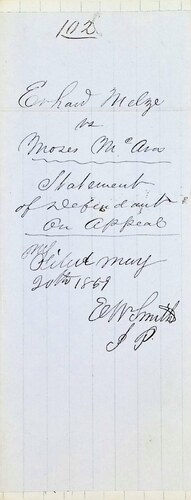 102
Erhard Melze
vs
Moses McAra
Statement
of Defendant
On Appeal
Filed May
20th 1859
E W Smith
J P